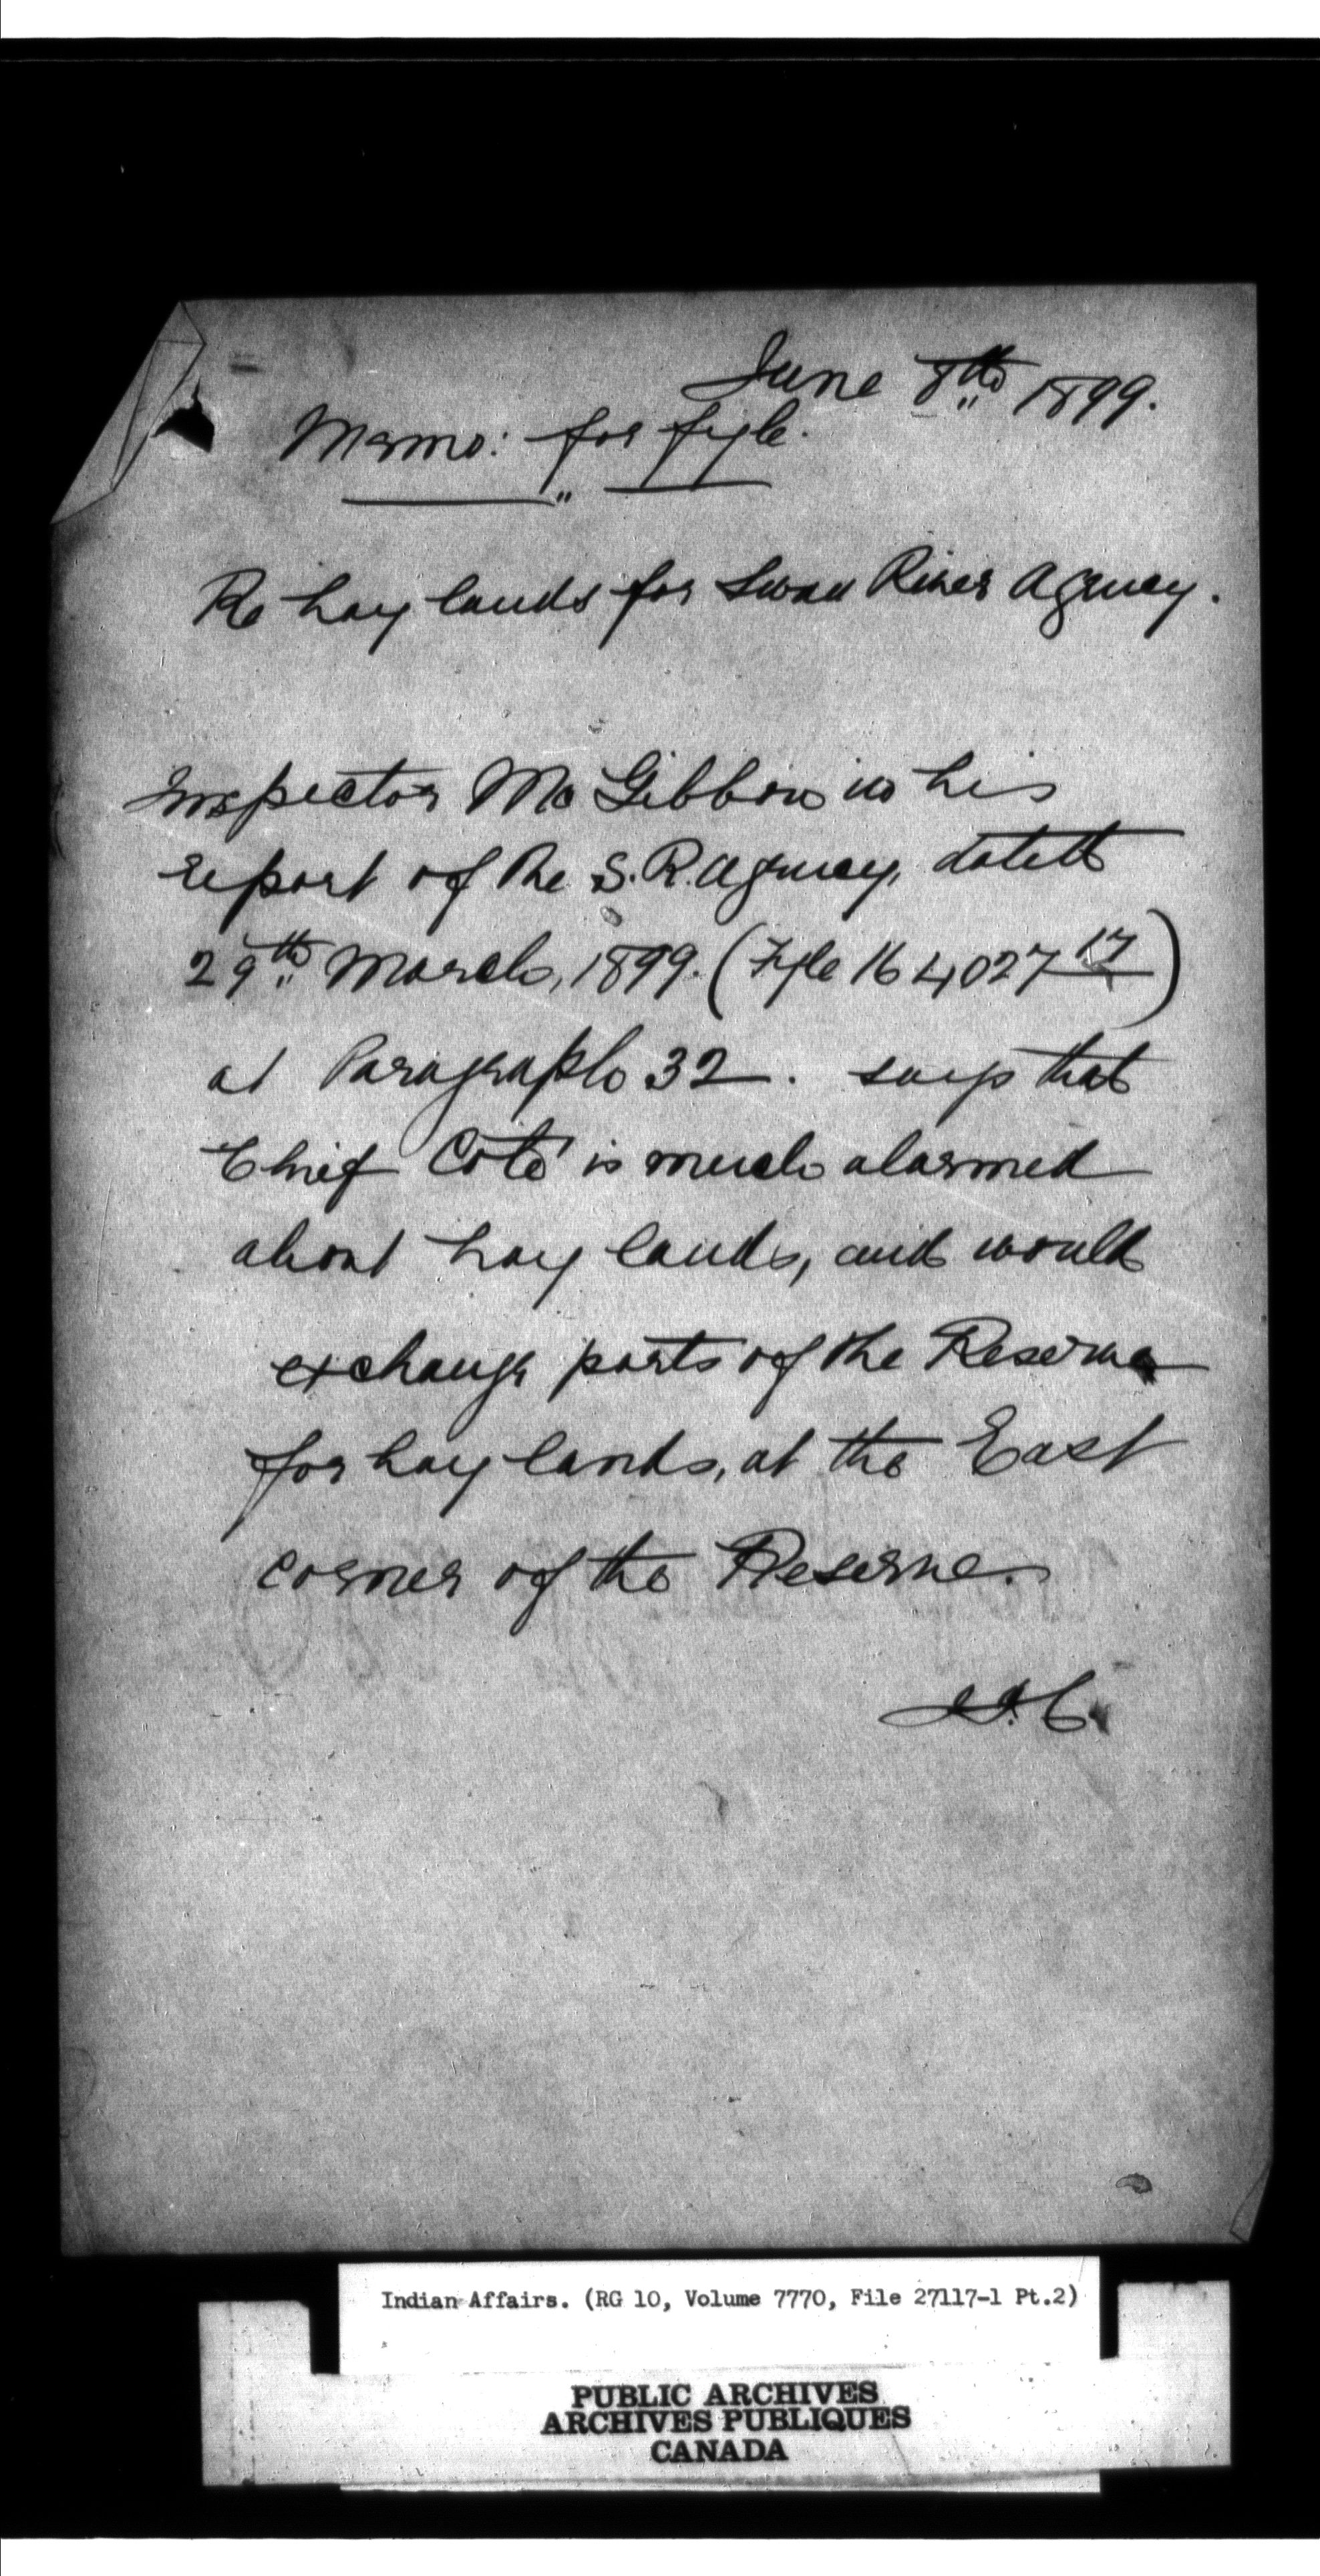 June 8th 1899.
Memo: for fyle.
Re hay lands for Swan River Agency.
Inspector McGibbon in his
report of the S. R. Agency, dated
29th March, 1899. (Fyle 164027 17)
at Paragraph 32. says that
Chief Coté is much alarmed
about hay lands, and would
exchange parts of the Reserve
for hay lands, at the East
corner of the Reserve.
Indian Affairs. (RG 10, Volume 7770, File 27117-1 Pt.2)
PUBLIC ARCHIVES
ARCHIVES PUBLIQUES
CANADA